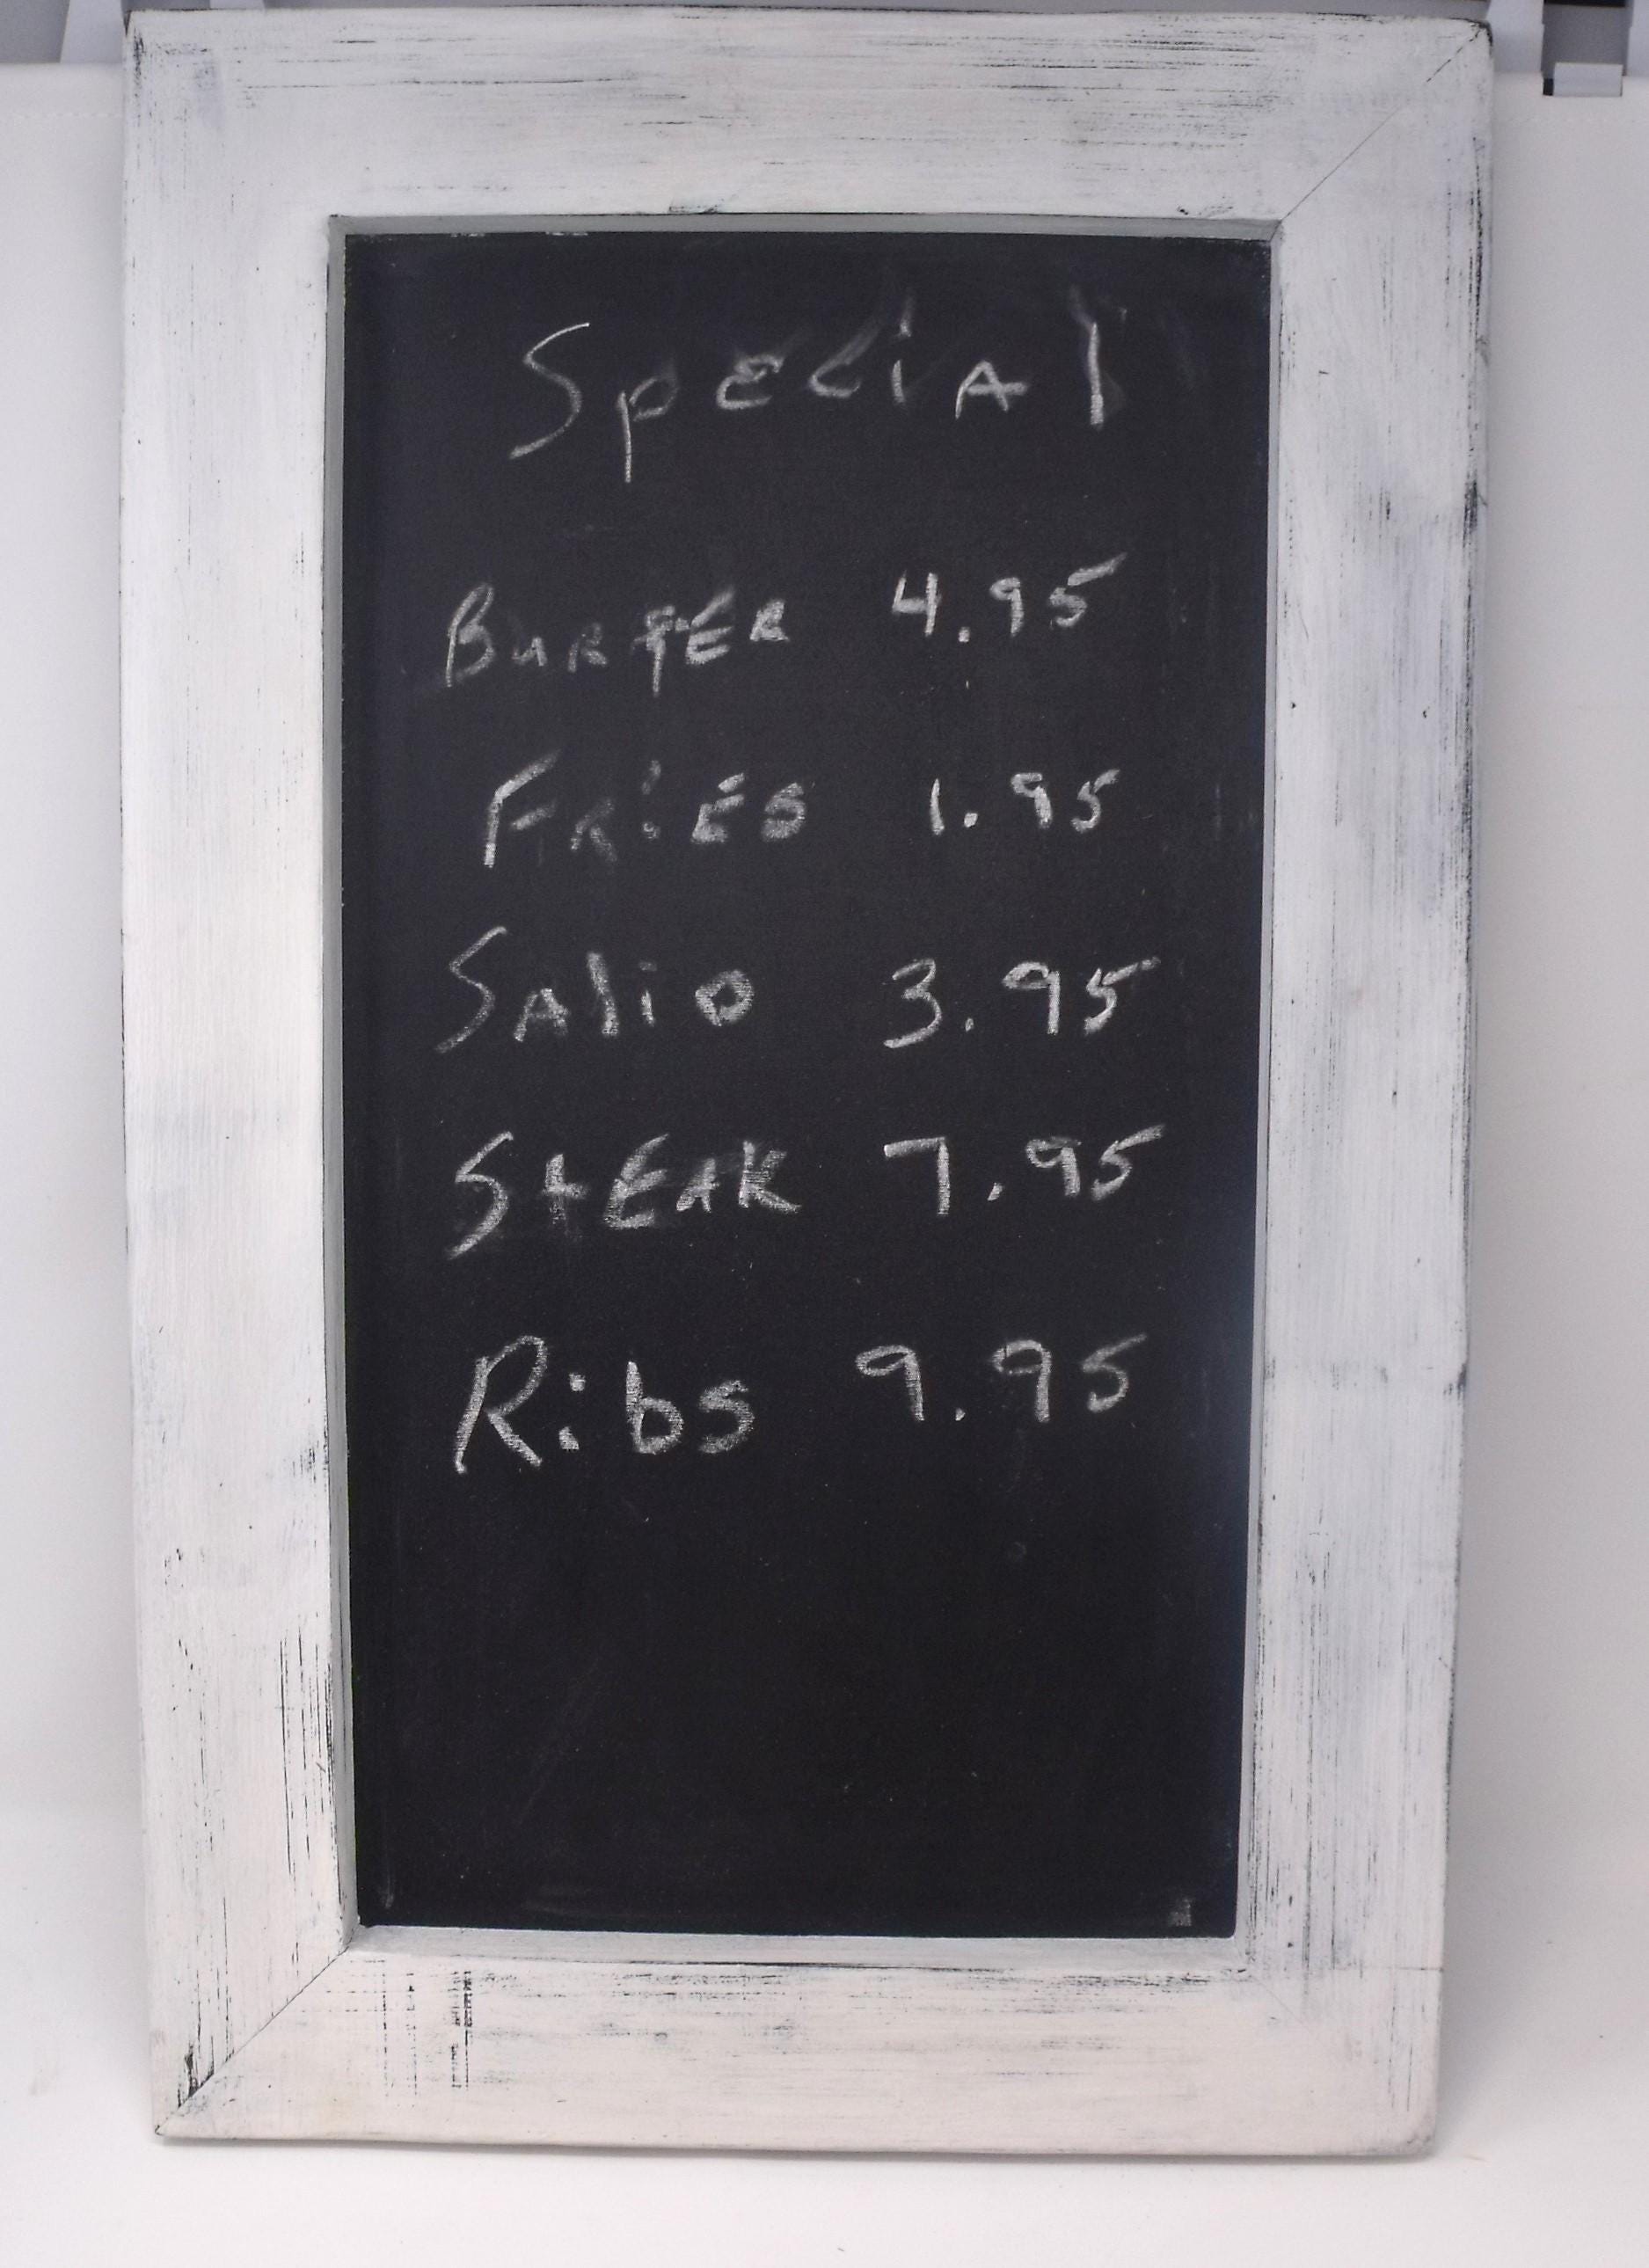 Special
Burger 4.95
Fries 1.95
Salid 3.95
Steak 7.95
Ribs 9.95